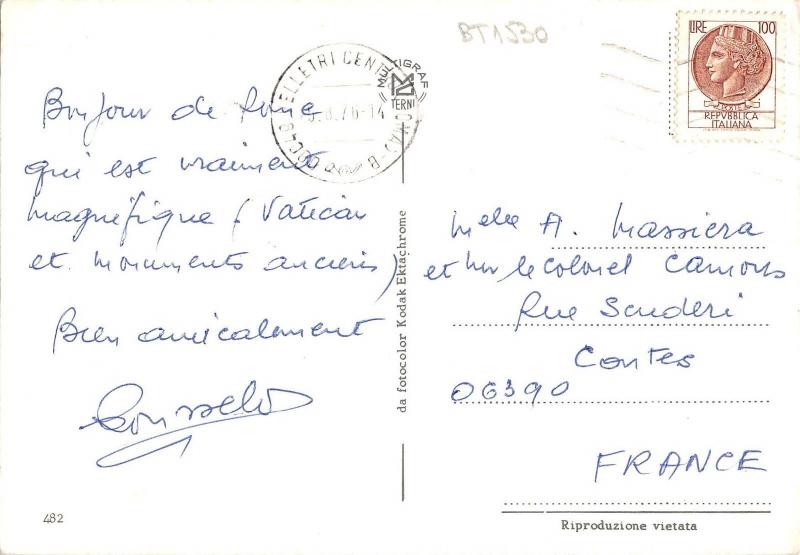 BT1530
LIRE 100
REPVBBLICA
ITALIANA
VELLETRI CENT
MULTIGRAF
TERNI
Bonjour de Rome
qui est vraiment
magnifique (Vatican
et monuments anciens)
Bien amicalement
da fotocolor Kodak Ektachrome
Melle A. Massiera
et Mr le Colonel Camous
Rue Scuderi
Contes
06390
FRANCE
482
Riproduzione vietata